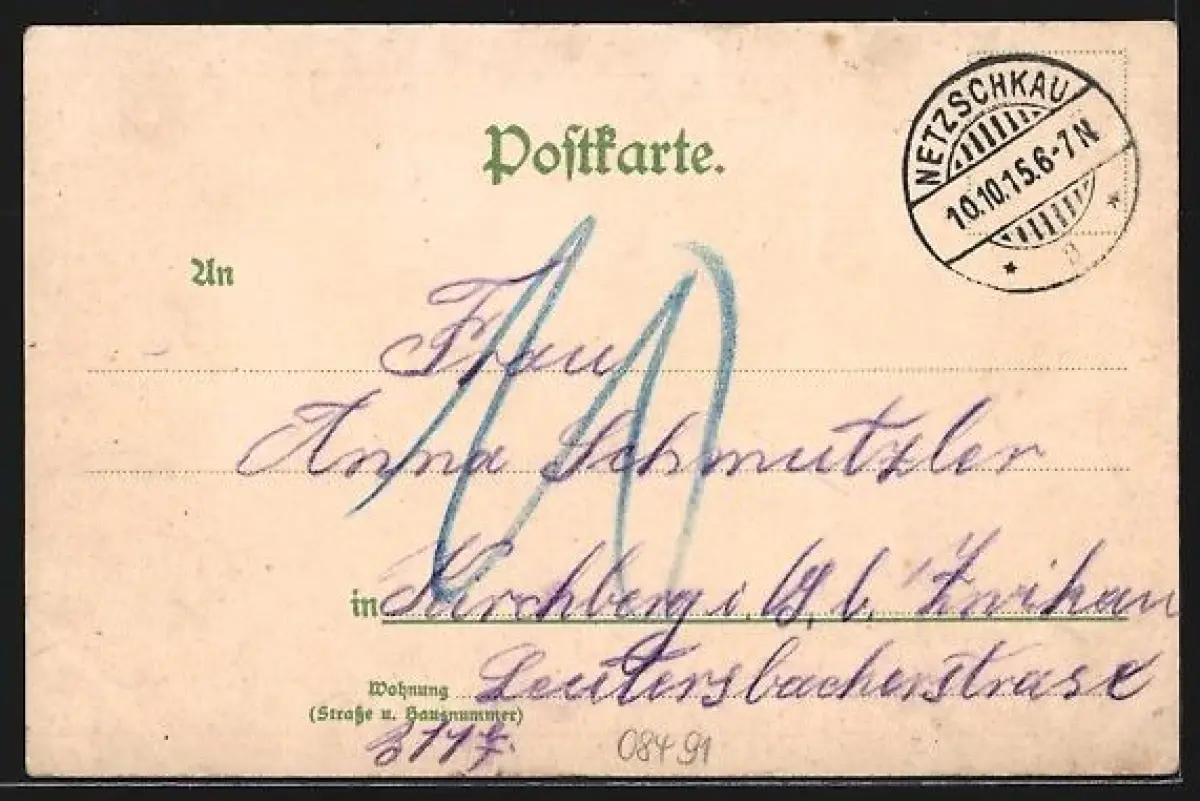 Postkarte.
NETZSCHKAU
10.10.15.6-7N
* a *
An
10
Frau
Anna Schmutzler
in Kirchberg i. S. b. Zwikau
Wohnung Leutersbacherstrase
(Straße u. Hausnummer)
311
08491